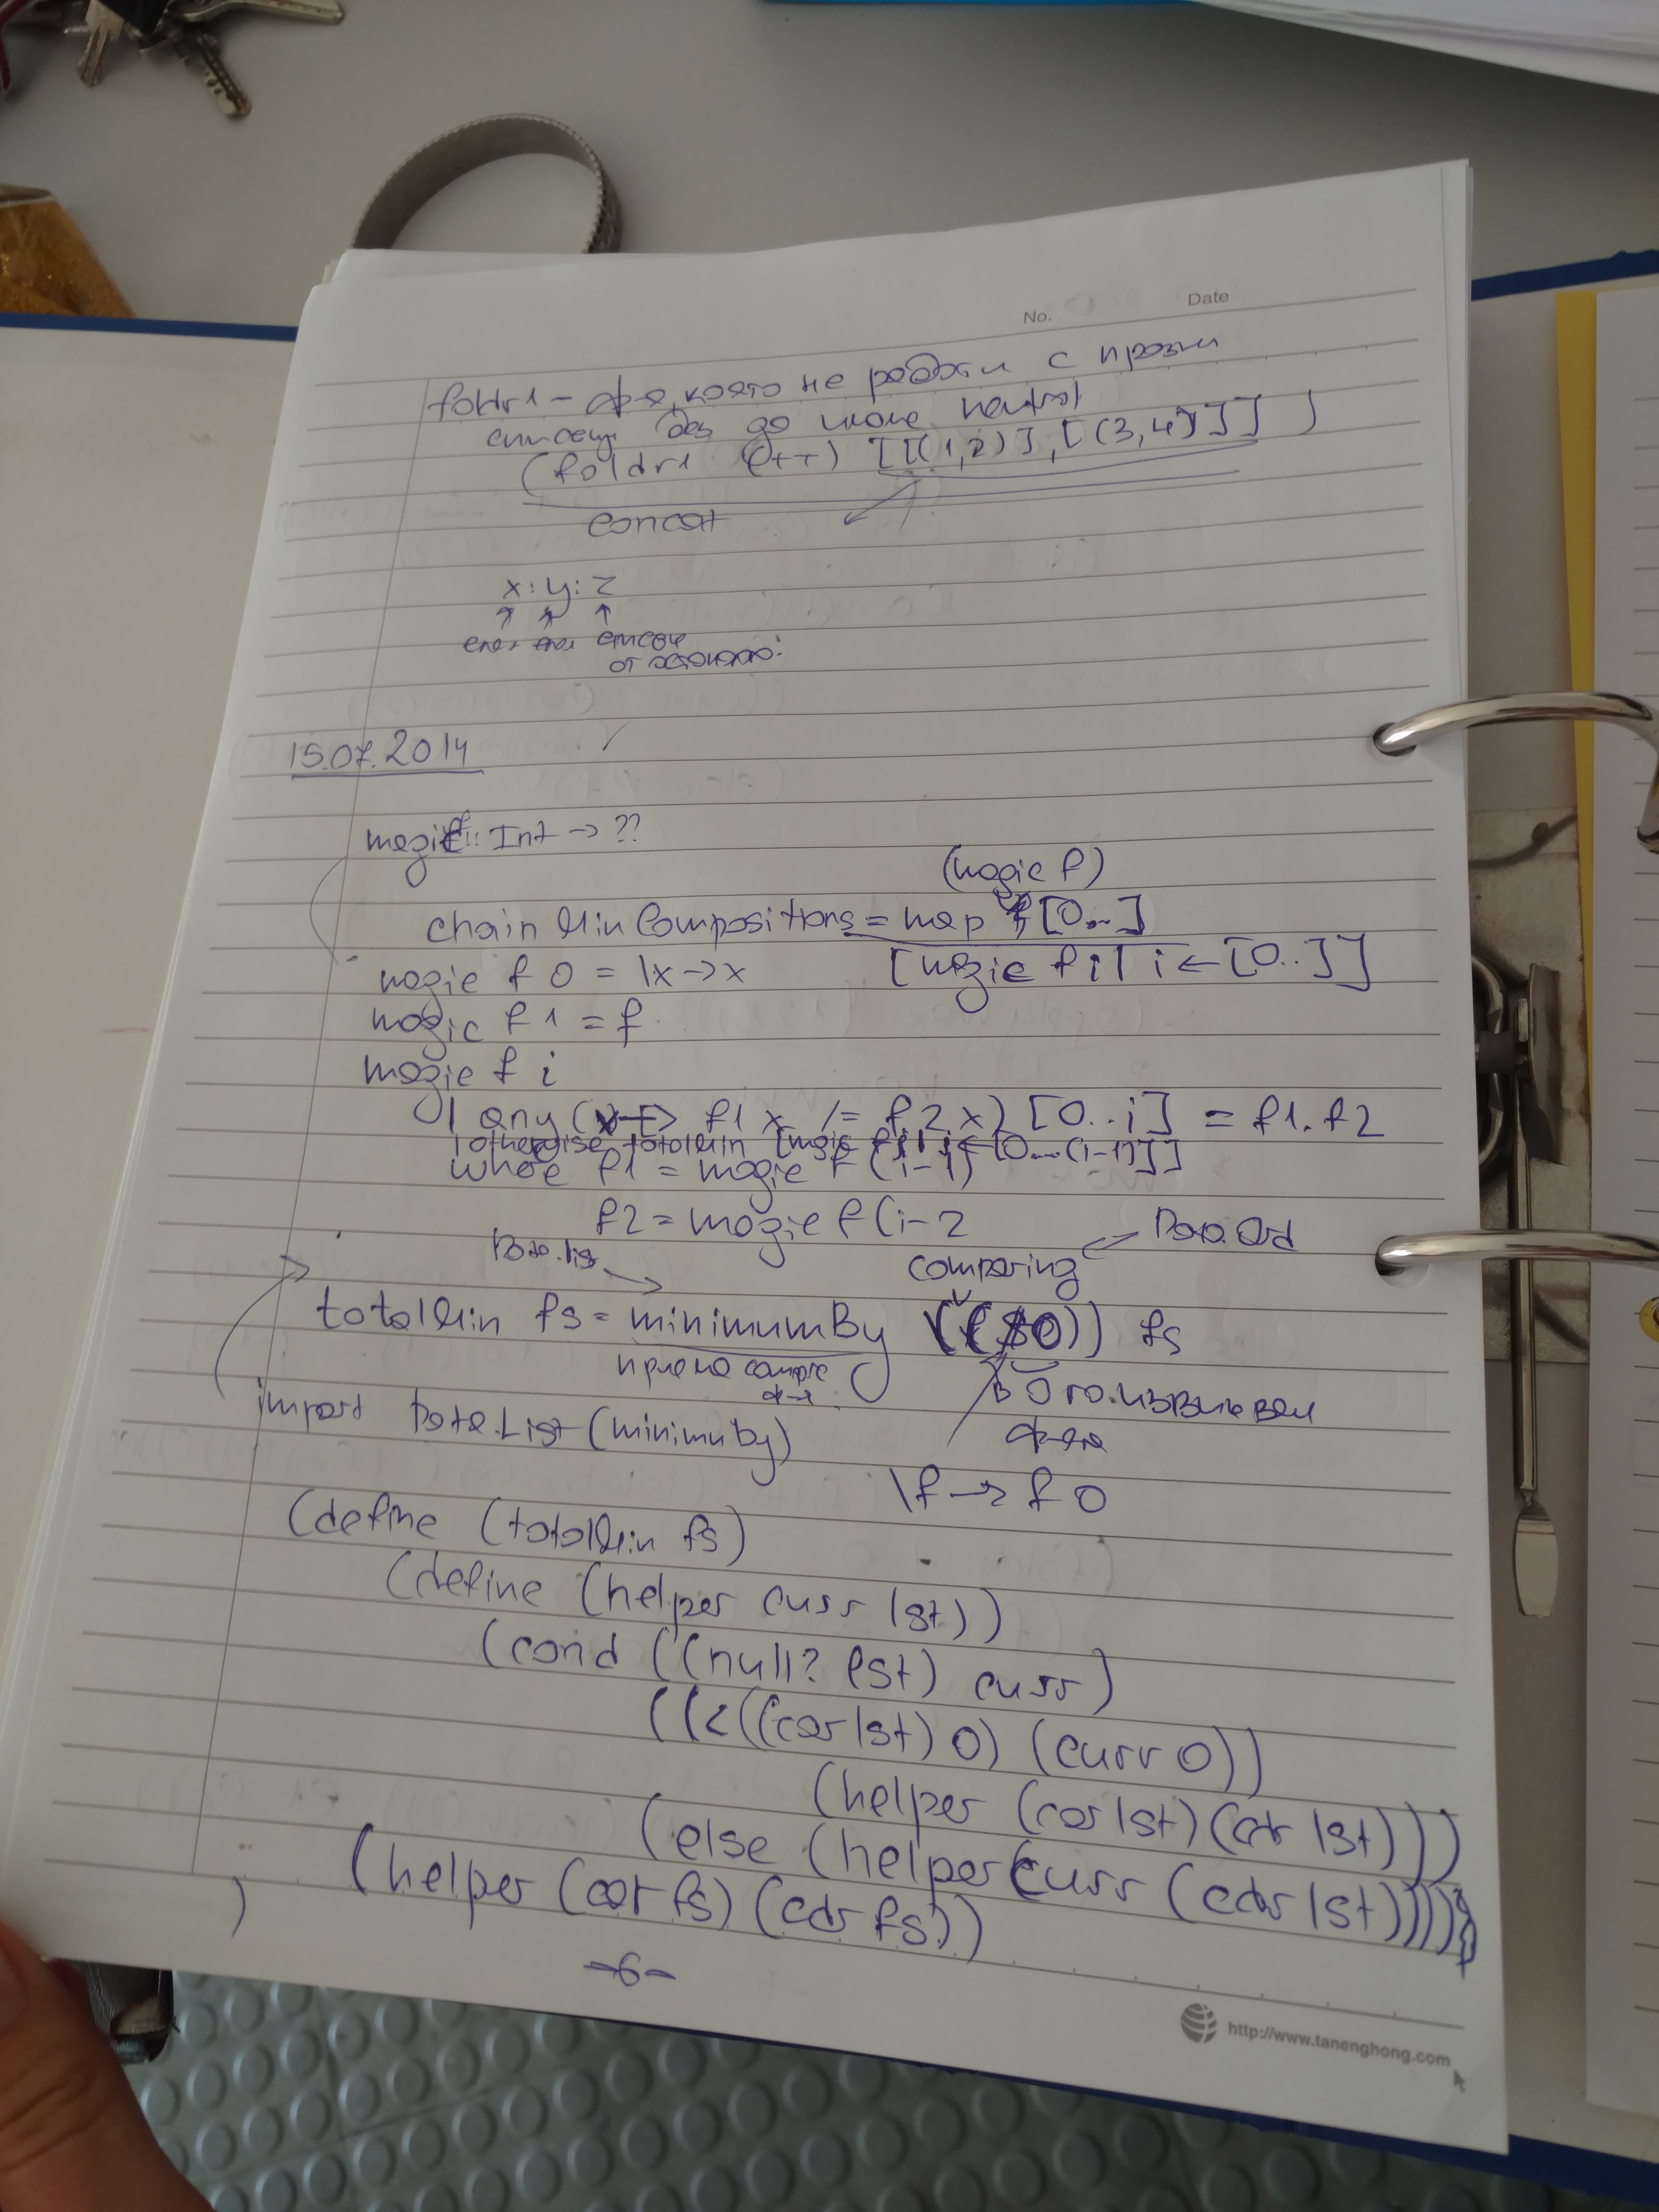 No.
Date
foldr1 – ф-я, която не работи с празни
списъци без да има neutral
(foldr1 (++) [[(1,2)],[(3,4)]])
concat
x:y:z
елем елем списък
от останало:
15.07.2014
magic f :: Int -> ??
(magic f)
chainMinCompositions = map f [0..]
magic f 0 = \x->x [magic f i | i <- [0..]]
magic f 1 = f
magic f i
| any (\x -> f1 x /= f2 x) [0..i] = f1.f2
| otherwise totalMin [magic f j | j <- [0..(i-1)]]
where f1 = magic f (i-1)
f2 = magic f (i-2
Data.list comparing Data.Ord
totalMin fs = minimumBy (($0)) fs
ф-я в 0 го извикваме
import Data.List (minimuBy)
\f -> f 0
(define (totalMin fs)
(define (helper curr lst))
(cond ((null? lst) curr)
((<((car lst) 0) (curr 0))
(helper (car lst) (cdr lst)))
(else (helper curr (cdr lst)))))
(helper (car fs) (cdr fs))
)
-6-
http://www.tanenghong.com